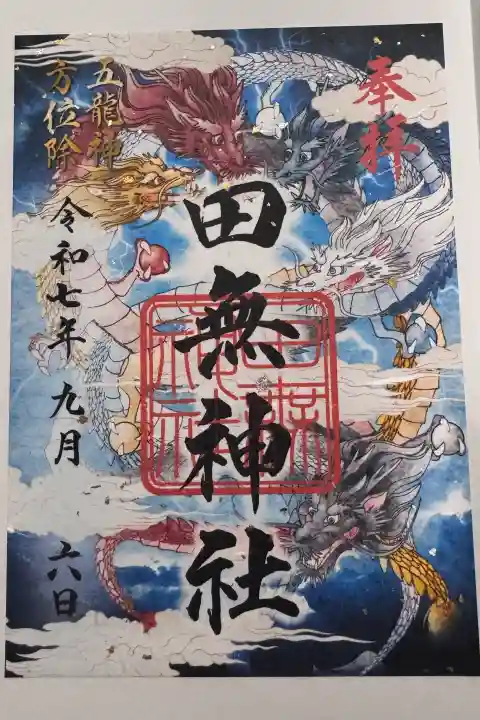 奉拝
田無神社
五龍神
方位除
令和七年 九月 六日
田無
神社